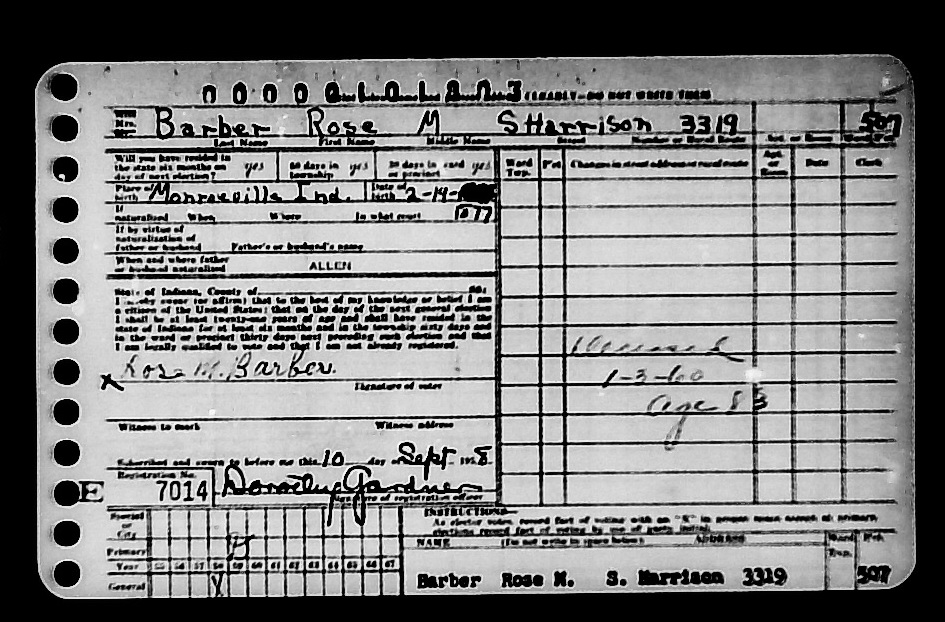 CLEARLY—DO NOT WRITE THEM
Miss Mrs. Mr. Barber Rose M S Harrison 3319 507
Last Name First Name Middle Name Street Number or Rural Route Apt. or Room Ward Pct.
Will you have resided in the state six months on day of next election? yes 60 days in township yes 30 days in ward or precinct yes
Ward Twp. Pct. Changes in street address or rural route Apt. or Room Date Clerk
Place of birth Monroeville Ind. Date of birth 2-14-
1877
If naturalized When Where In what court
If by virtue of naturalization of father or husband Father's or husband's name
When and where father or husband naturalized
ALLEN
State of Indiana, County of ss:
I hereby swear (or affirm) that to the best of my knowledge or belief I am
a citizen of the United States; that on the day of the next general election
I shall be at least twenty-one years of age and shall have resided in the
state of Indiana for at least six months and in the township sixty days and
in the ward or precinct thirty days next preceding such election and that
I am legally qualified to vote and that I am not already registered.
Deceased
1-3-60
age 83
x Rose M. Barber
Signature of voter
Witness to mark Witness address
Subscribed and sworn to before me this 10 day of Sept 1958
Registration No.
E 7014 Dorothy Gardner
Signature of registration officer
INSTRUCTIONS—
As elector votes, record fact of voting with an "X" in proper
elections record fact of voting by use of party initial.
Special or City
Primary
Year 55 56 57 58 59 60 61 62 63 64 65 66 67
General X
NAME (Do not write in space below) ADDRESS Ward Twp. Pct.
Barber Rose M. S. Harrison 3319 507